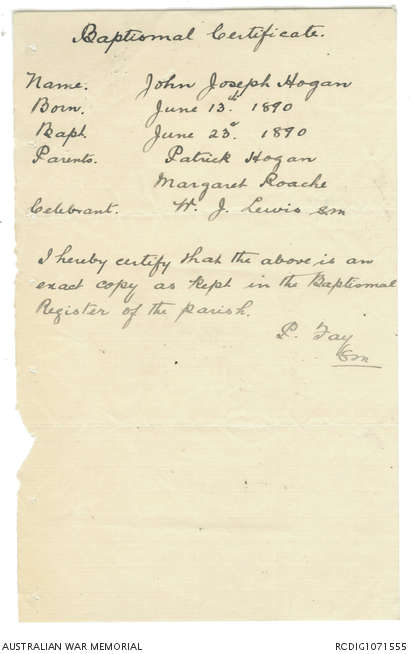 Baptismal Certificate.
Name. John Joseph Hogan
Born. June 13th. 1890
Bapt. June 23d. 1890
Parents. Patrick Hogan
Margaret Roache
Celebrant. W. J. Lewis cm
I hereby certify that the above is an
exact copy as kept in the Baptismal
Register of the parish.
P. Fay
cm
AUSTRALIAN WAR MEMORIAL RCDIG1071555